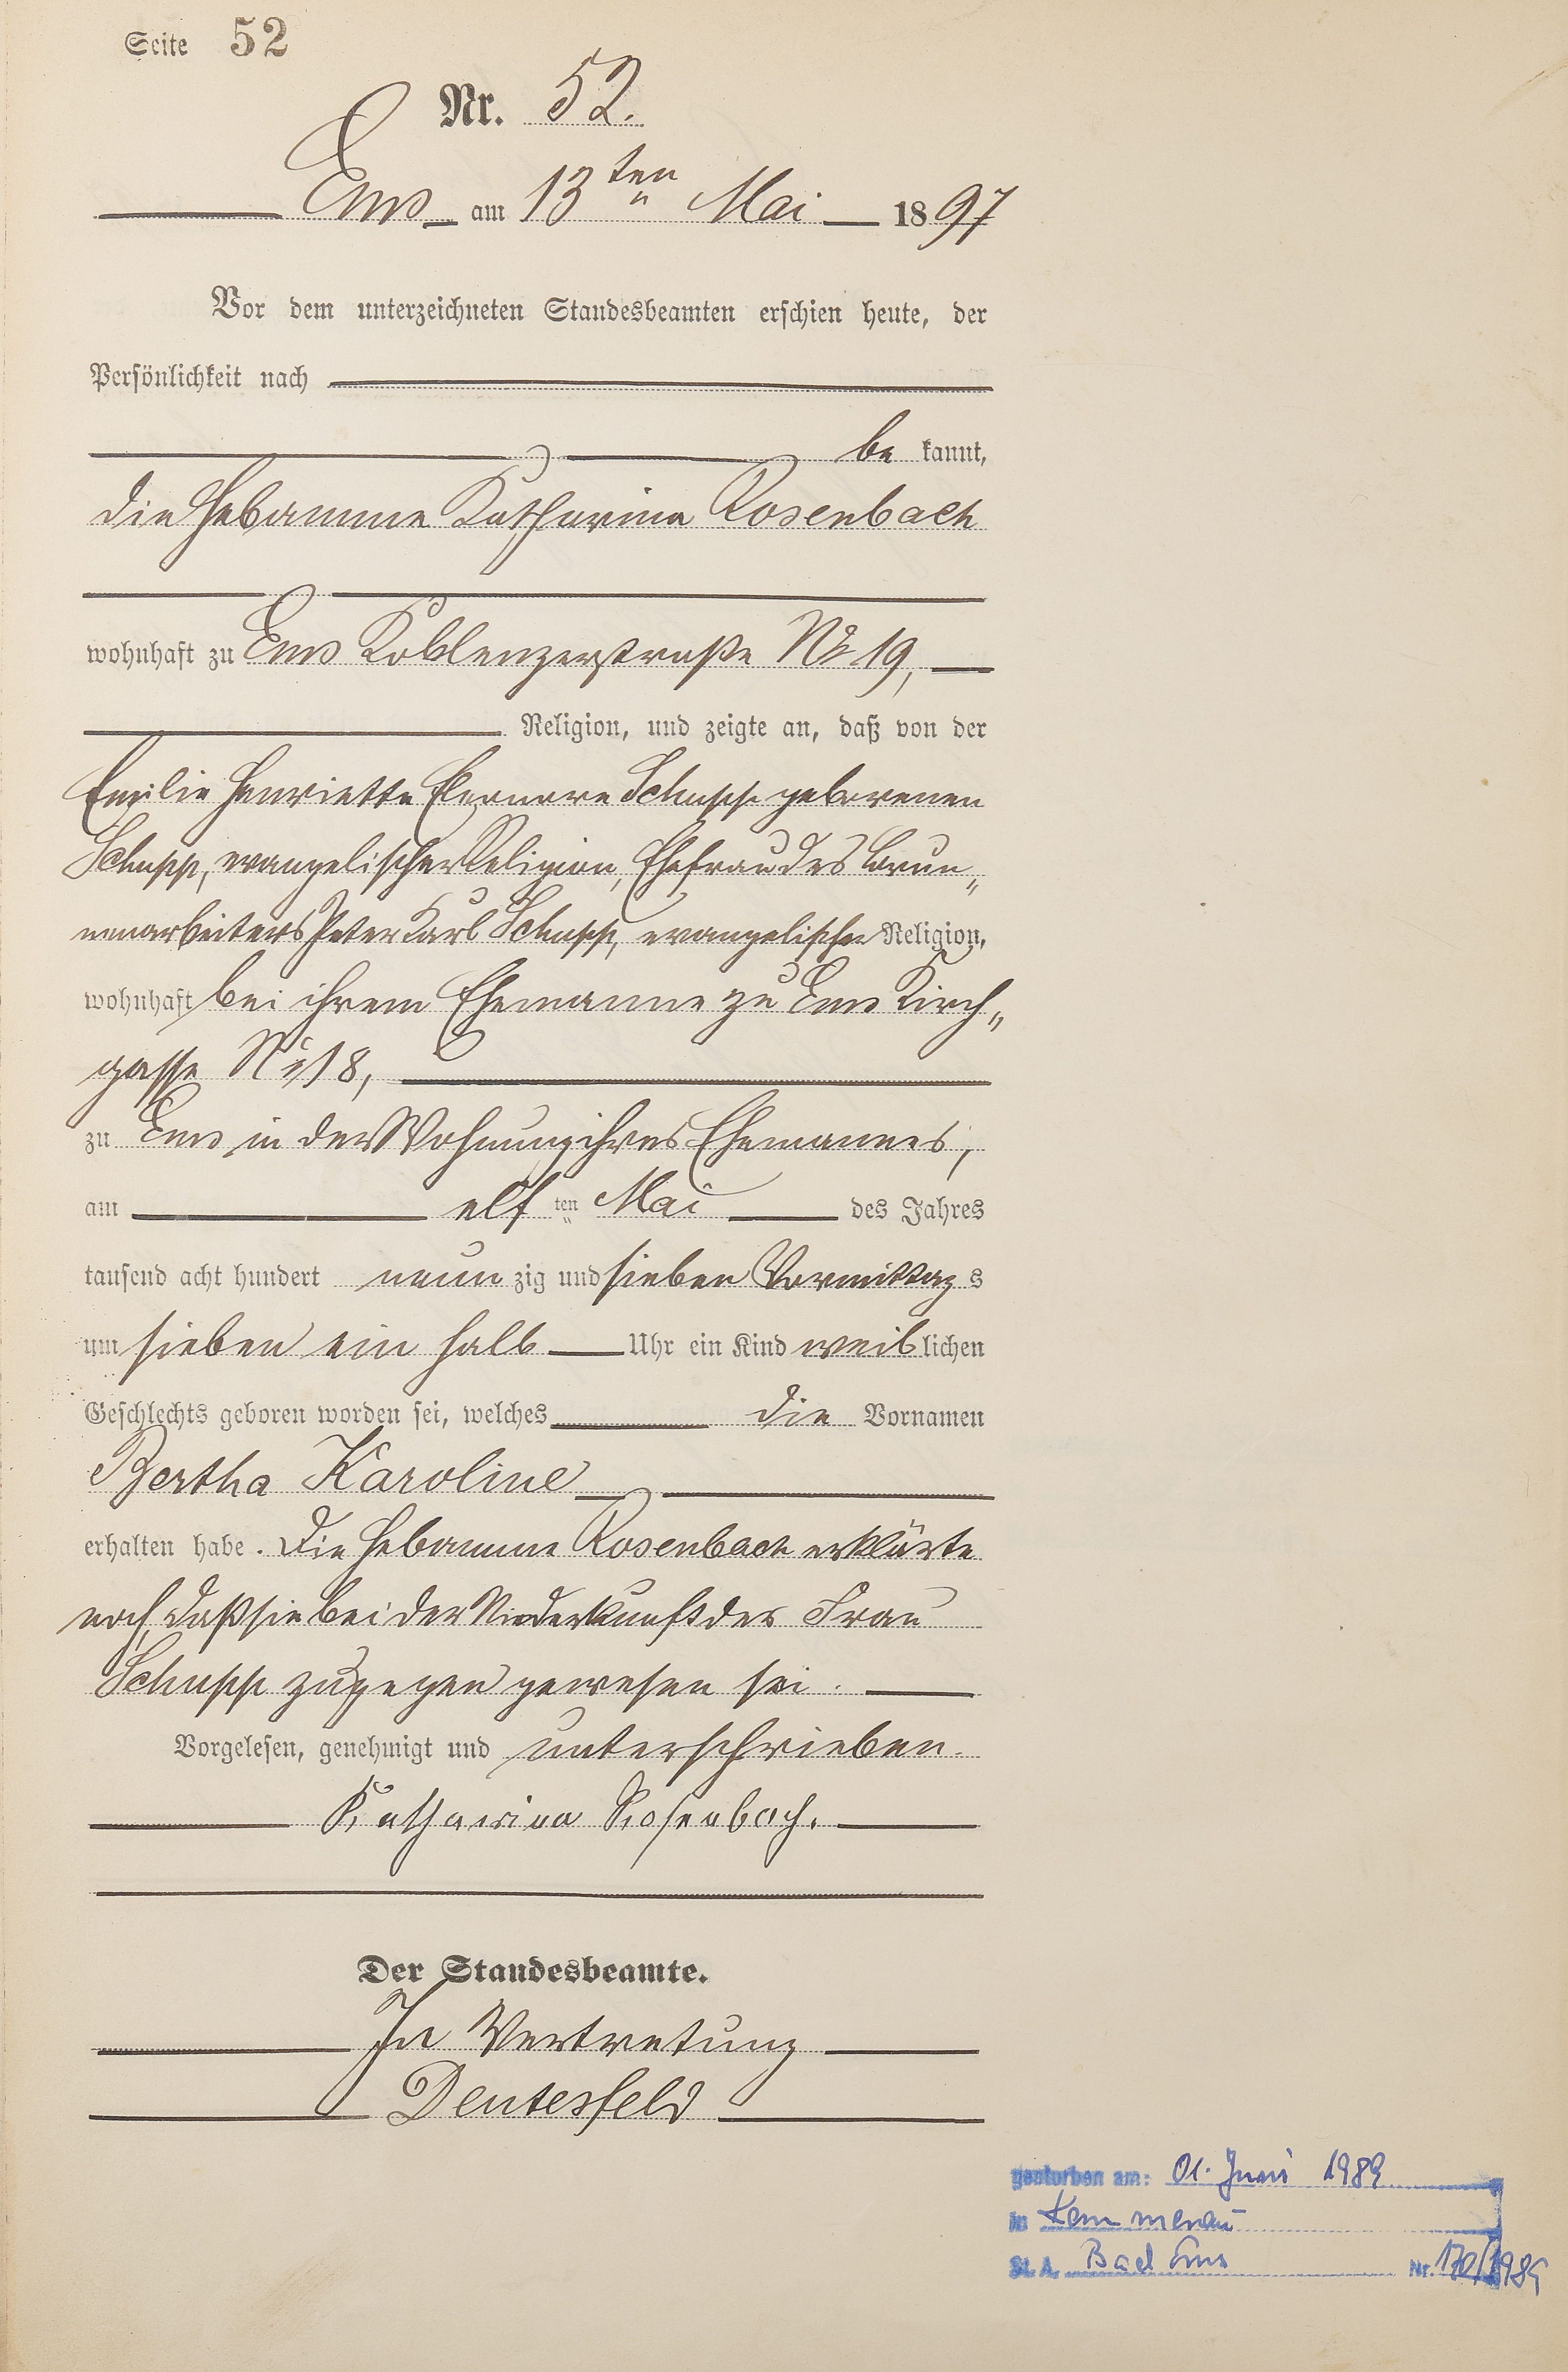 Seite 52
Nr. 52.
Ems am 13ten Mai 1897
Vor dem unterzeichneten Standesbeamten erschien heute, der
Persönlichkeit nach
be kannt,
die Hebamme Katharina Rosenbach
wohnhaft zu Ems Koblenzerstraße No 19,
Religion, und zeigte an, daß von der
Emilie Henriette Eleonore Schupp geborenen
Schupp, evangelischer Religion, Ehefrau des Brun„
nenarbeiters Peter Karl Schupp, evangelischer Religion,
wohnhaft bei ihrem Ehemanne zu Ems Kirch„
gasse No 18,
zu Ems in der Wohnung ihres Ehemannes,
am elf ten Mai des Jahres
tausend acht hundert neun zig und sieben Vormittag s
um sieben ein halb Uhr ein Kind weib lichen
Geschlechts geboren worden sei, welches die Vornamen
Bertha Karoline
erhalten habe. Die Hebamme Rosenbach erklärte
noch, daß sie bei der Niederkunft der Frau
Schupp zugegen gewesen sei.
Vorgelesen, genehmigt und unterschrieben.
Katharina Rosenbach.
Der Standesbeamte.
In Vertretung
Deutesfeld
gestorben am: 01. Juni 1989
in Kemmenau
St. A. Bad Ems Nr. 170/1989